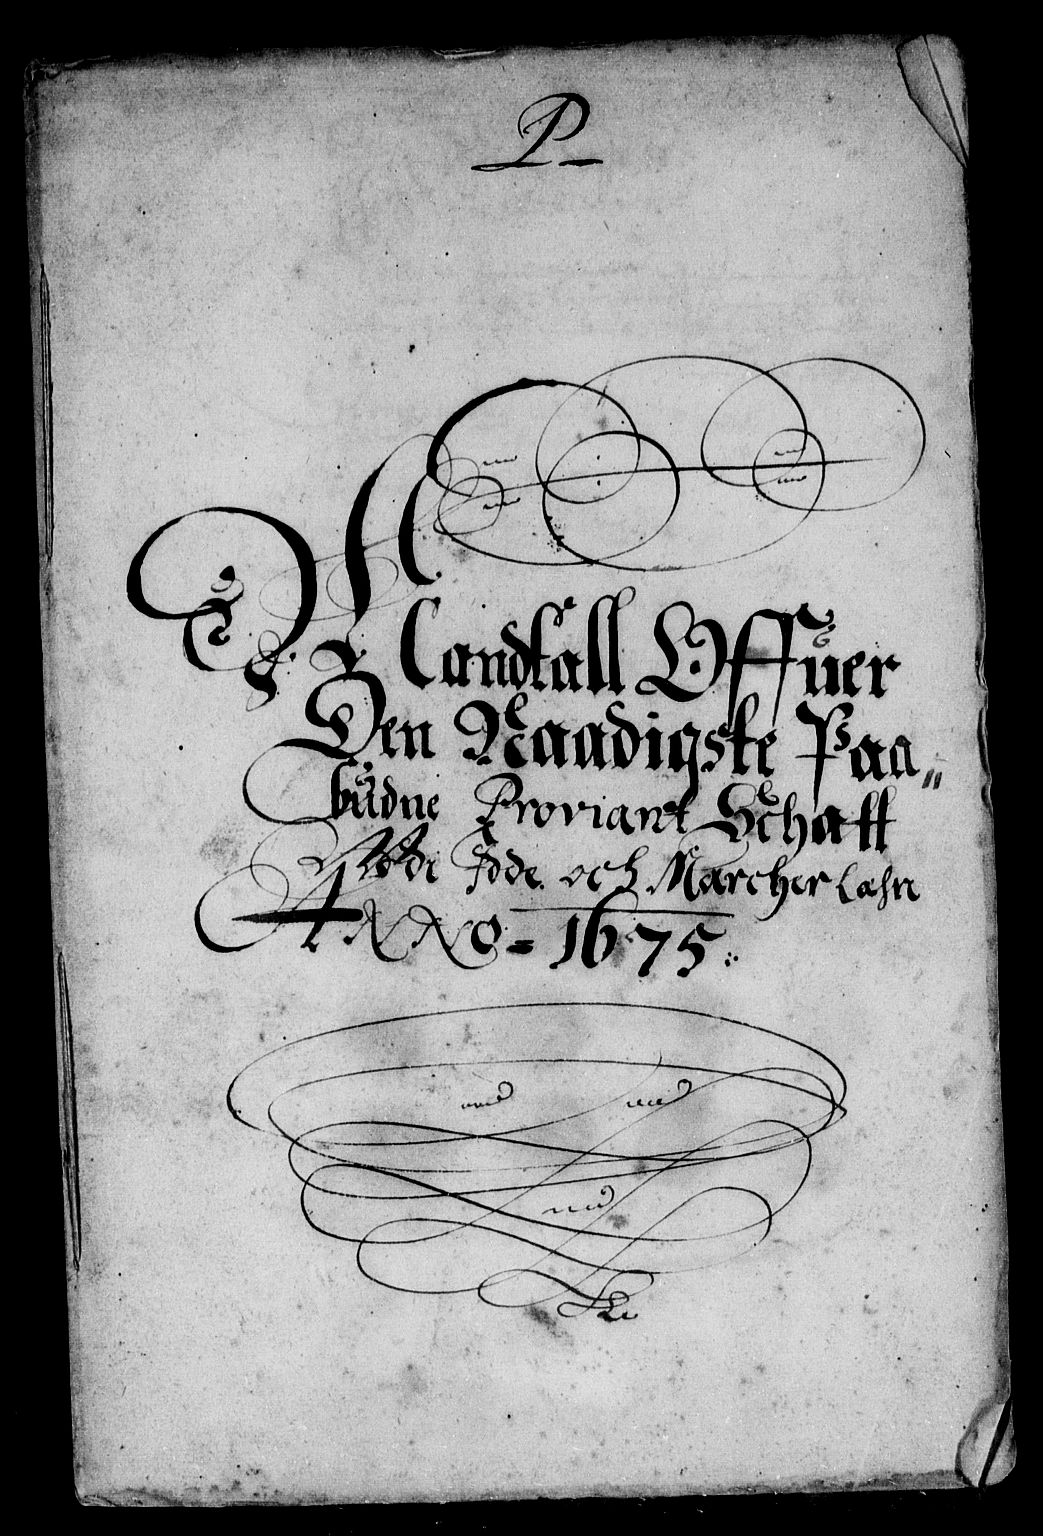 P
Mandtall Offuer
Den Naadigste Paa„
büdne Proviant Schatt
Udi Fode. och Marcher Lehn
ANNO - 1675